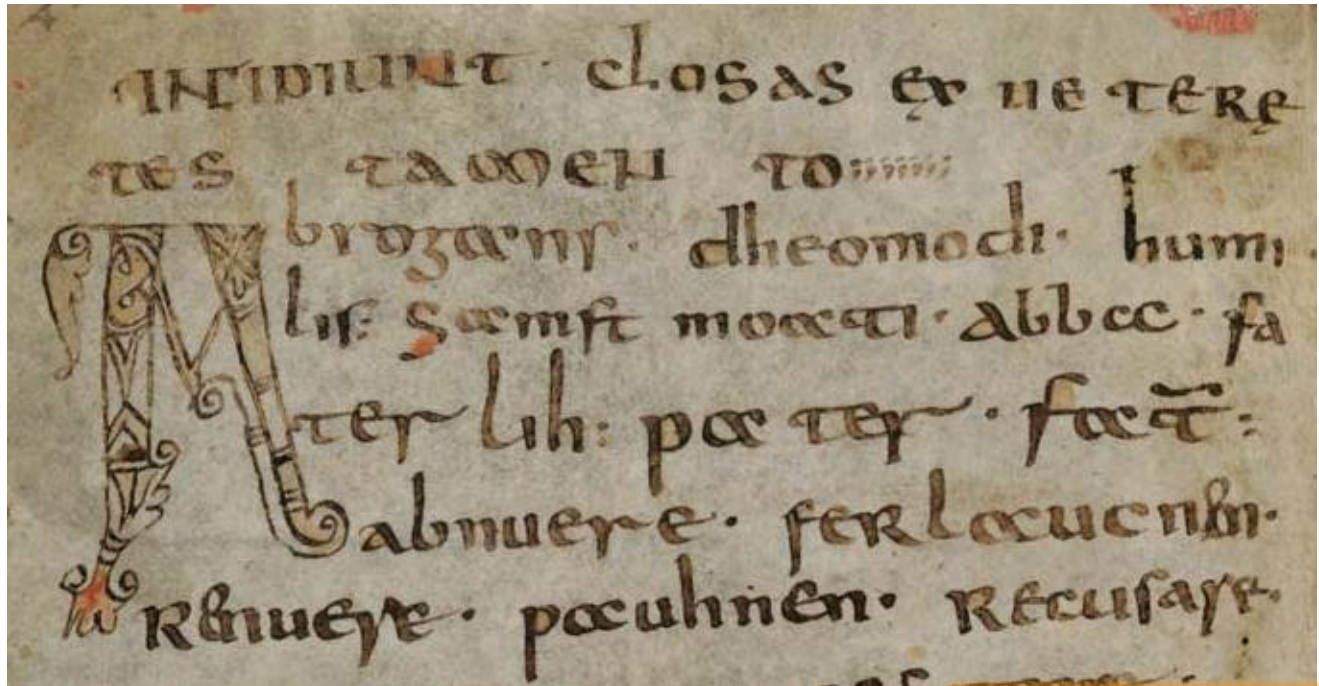 INCIPIUNT · CLOSAS EX UETERE
TES TAMEN TO
Abrogans · dheomodi · humi
lis: samft moati · abbaa · fa
ter lih: pater · fat̄:
abnuere · ferlaucnen ·
Renuere · pauhnen · Recusare ·